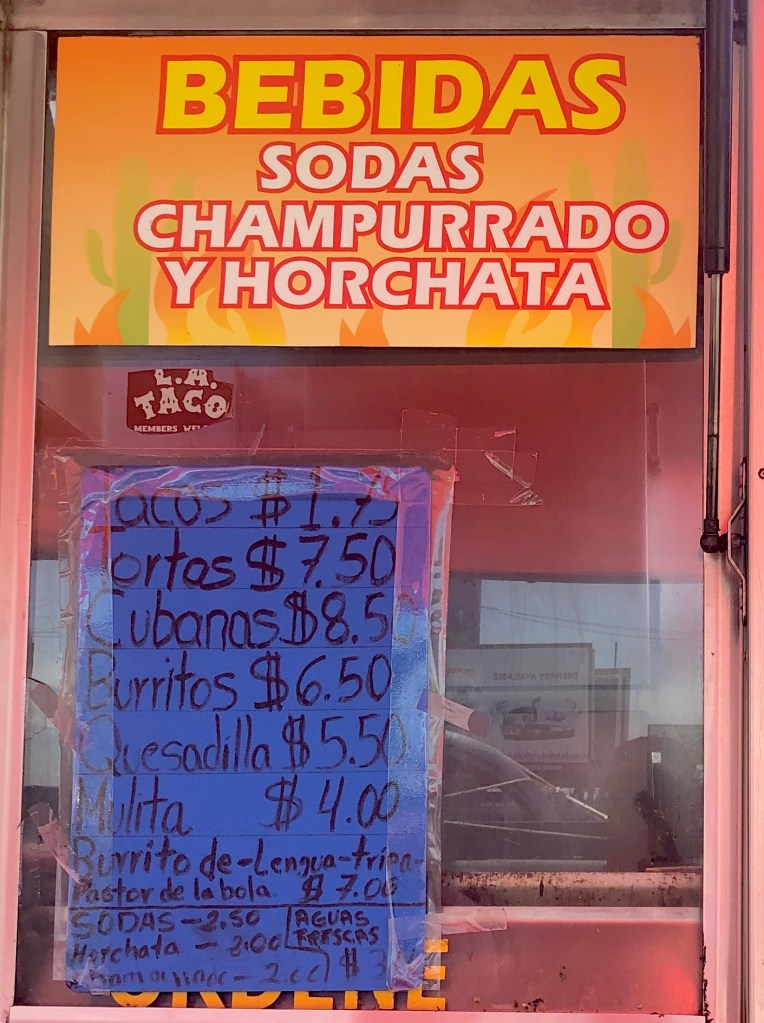 BEBIDAS
SODAS
CHAMPURRADO
Y HORCHATA
L.A.
TACO
MEMBERS
Tacos $1.75
Tortas $7.50
Cubanas $8.50
Burritos $6.50
Quesadilla $5.50
Mulita $4.00
Burrito de-Lengua-tripa-
Pastor de la bola $7.00
SODAS - 2.50
Horchata - 2.00
Champurrado - 2.00
AGUAS
FRESCAS
$3
ORDENE
DELIVERY AVAILABLE